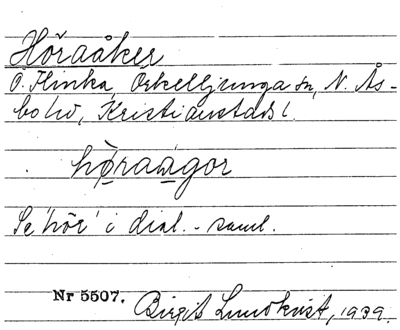 Höraåker
Ö. Flinka, Örkelljunga sn, N. Ås-
bo hd, Kristianstads l.
hǫraågor
Se 'hör' i dial.-saml.
Nr 5507. Birgit Lundkvist, 1939.